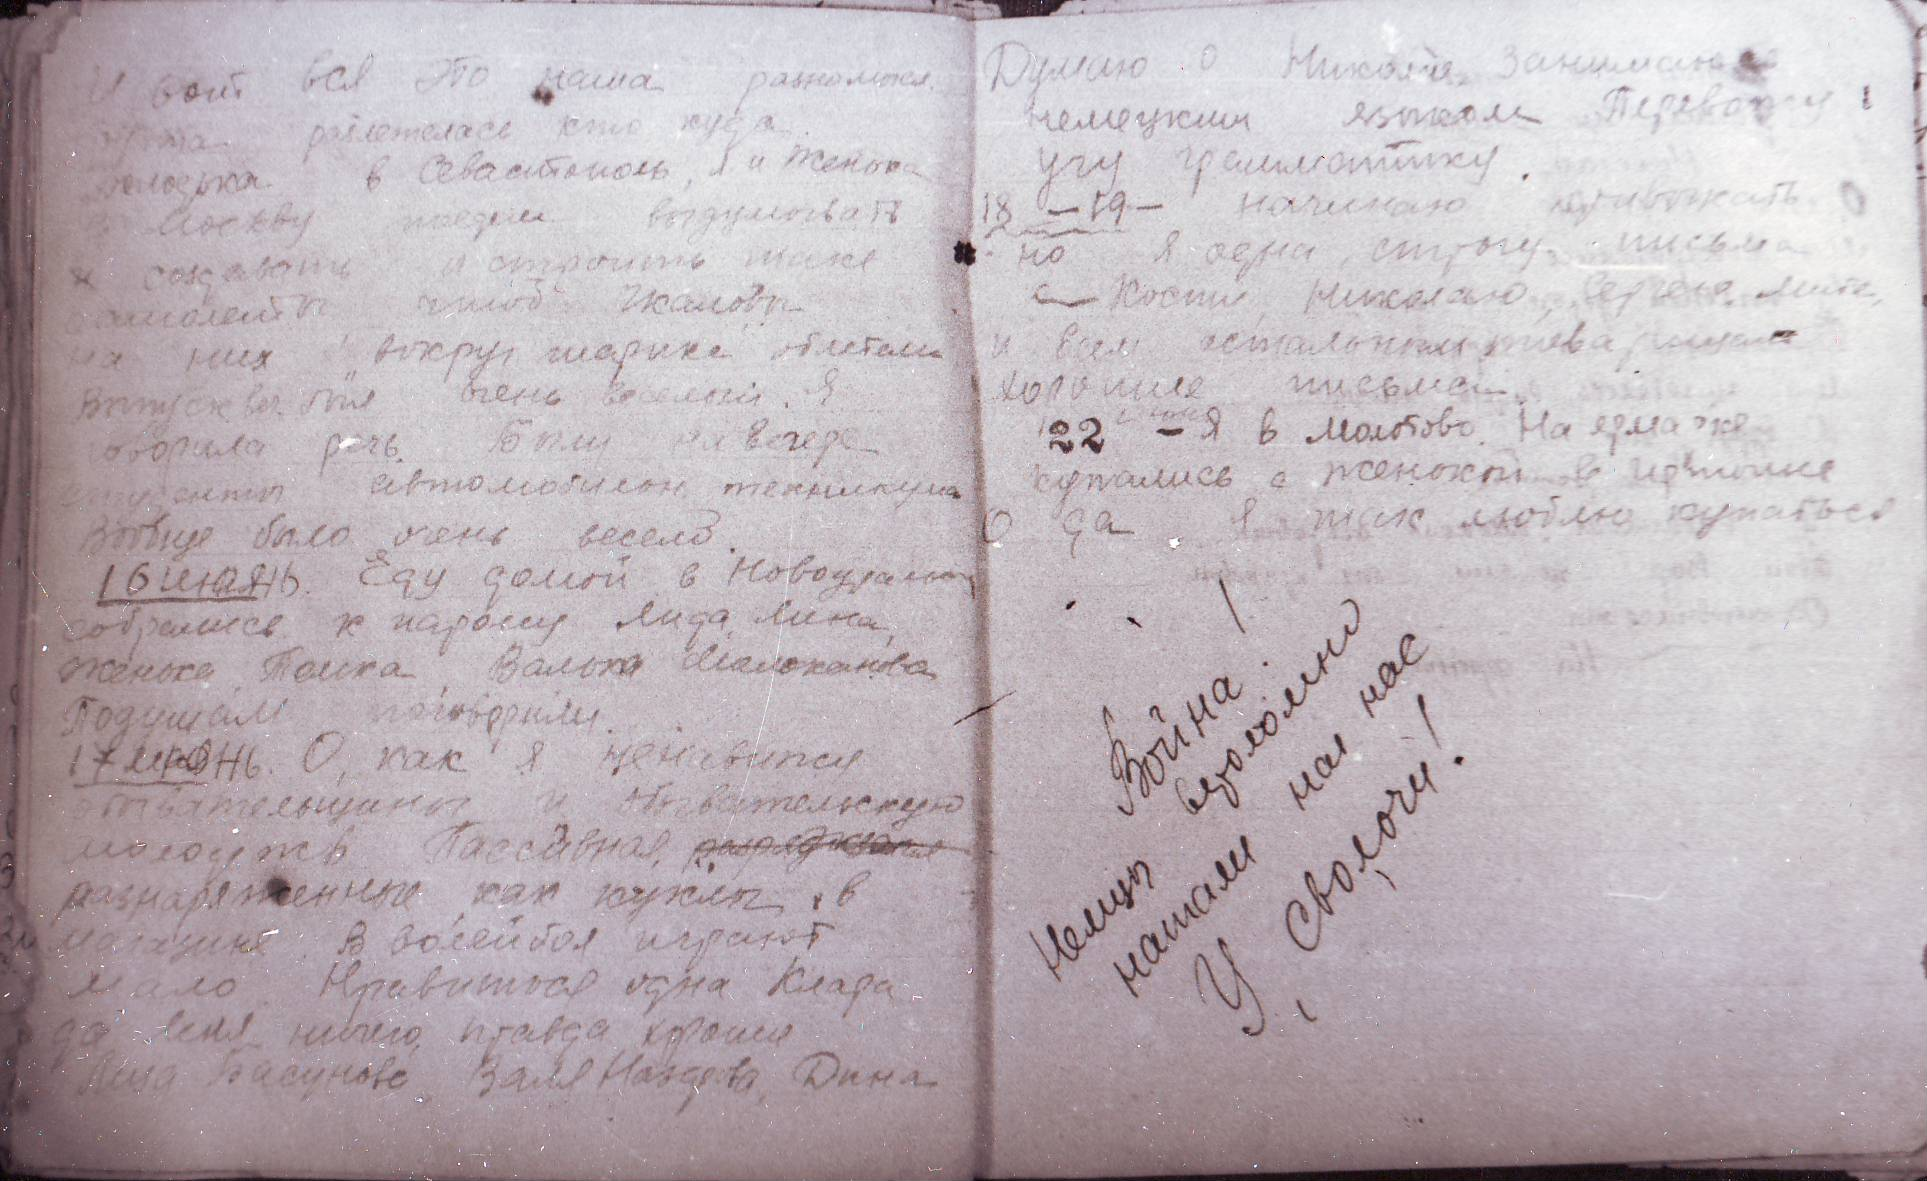 И вот вся эта наша
разлетелась кто куда.
в Севастополь, я и Женька
в Москву поедем выдумывать
и создавать и строить такие
самолеты чтоб Чкаловы
на них вокруг шарика облетали
Выпускной был очень веселый. Я
говорила речь. Были на вечере
студенты автомобильн. техникума
Вообще было очень весело.
16 июнь. Еду домой в
собрались к парому Лида, Лина,
Женька, Томка, Валька Малоканова
По душам поговорили.
17 июнь. О, как я ненавижу
обывательщину и обывательскую
молодежь. Пассивная,
разнаряженные как куклы, в
В волейбол играют
мало. Нравиться одна Клара
да Леля ничего, правда хорошие
Басунова, Валя Назарова, Дина
Думаю о Николае. Занимаюсь
немецким языком. Перевожу
учу грамматику.
18 – 19 – начинаю привыкать.
но я одна, строчу письма
Косте, Николаю, Сереже, Мите,
и всем остальным товарищам
хорошие письма.
22 – Я в Молотово. На ярмарке
купались с Женькой в
О да Я так люблю купаться
Война!
Немцы вероломно
напали на нас
У, сволочи!